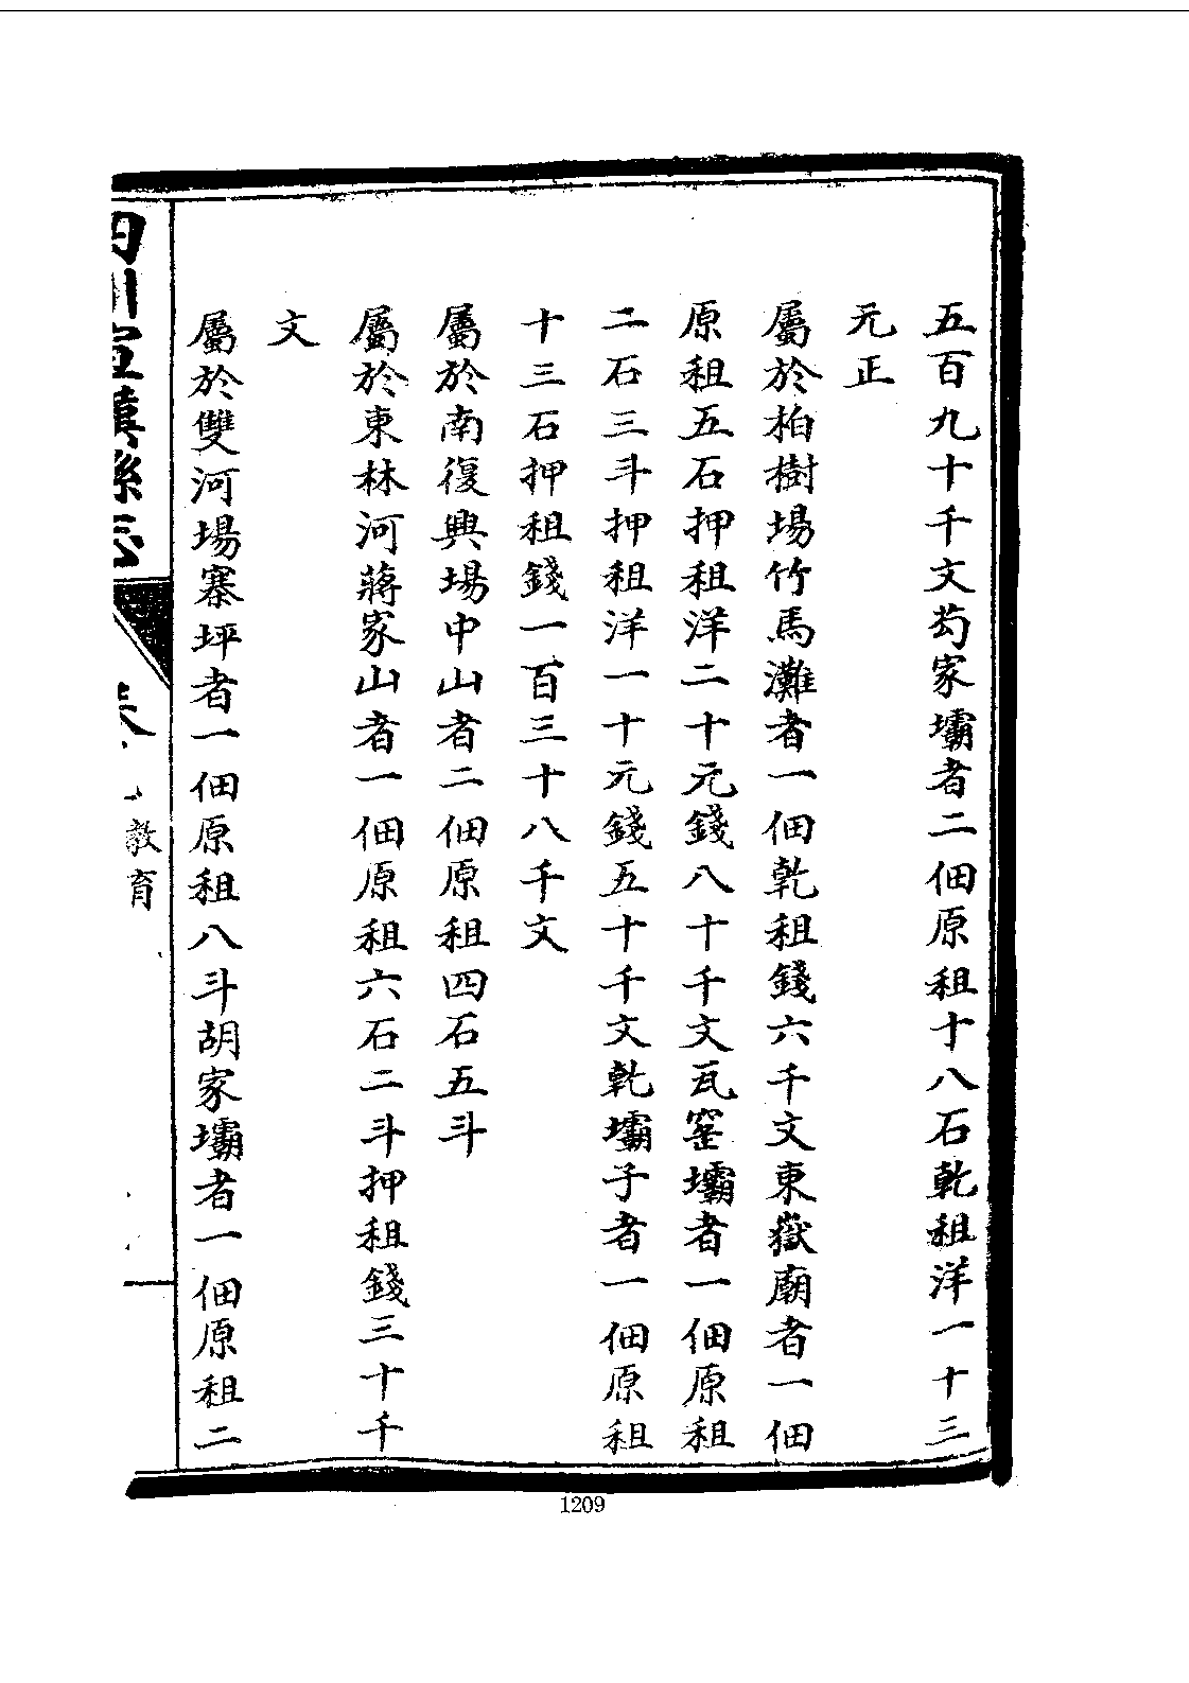 五百九十千文芶家壩者二佃原租十八石乾租洋一十三
元正
屬於柏樹場竹馬灘者一佃乾租錢六千文東嶽廟者一佃
原租五石押租洋二十元錢八十千文瓦窰壩者一佃原租
二石三斗押租洋一十元錢五十千文乾壩子者一佃原租
十三石押租錢一百三十八千文
屬於南復興場中山者二佃原租四石五斗
屬於東林河蔣家山者一佃原租六石二斗押租錢三十千
文
屬於雙河場寨坪者一佃原租八斗胡家壩者一佃原租二
四川宣漢縣志
卷
教育
1209